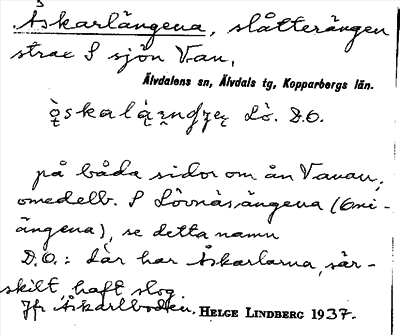 Åskarlängena, slåtterängen
strax S sjön Van,
Älvdalens sn, Älvdals tg, Kopparbergs län.
Lö. D.O.
på båda sidor om ån Vanan,
omedelb. S Lövnäsängena (Omi-
ängena), se detta namn
D.O.: där har Åskarlarna, sär-
skilt, haft slog
Jfr Åskarlboden. HELGE LINDBERG 1937.